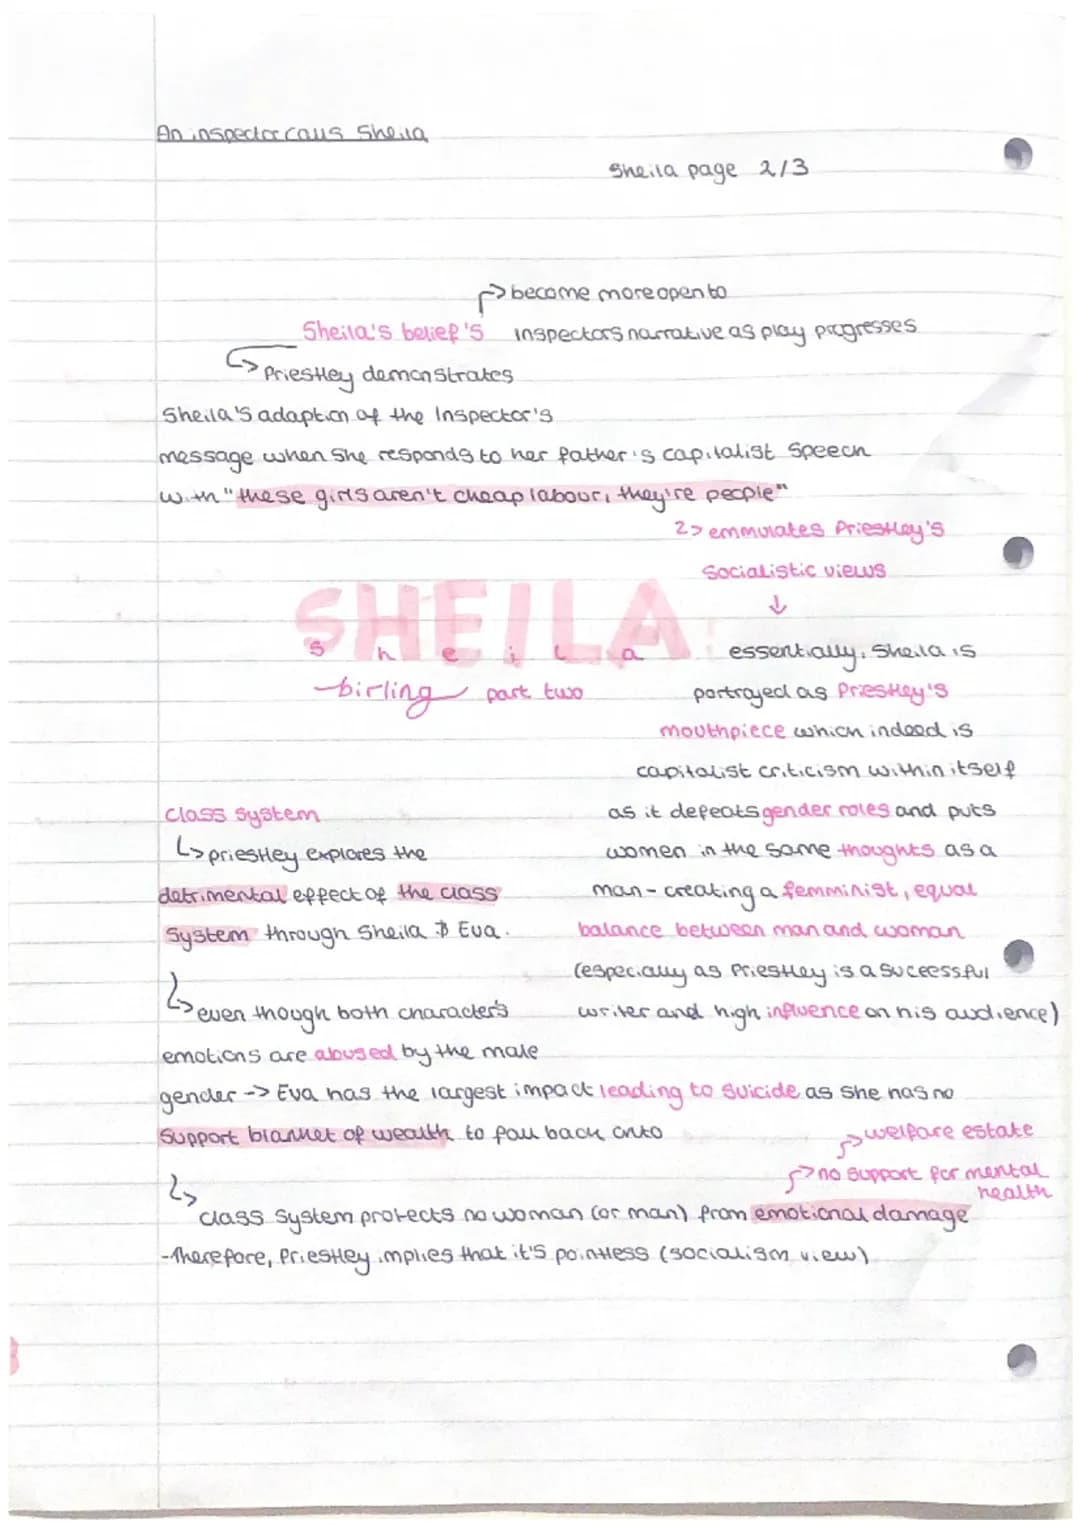 An inspector calls Sheila
Sheila page 2/3
become more open to
Sheila's belief's inspectors narrative as play progresses
Priestley demonstrates
Sheila's adaption of the Inspector's
message when she responds to her father's capitalist speech
with "these girls aren't cheap labour, they're people"
emmulates Priestley's
socialistic views
SHEILA
sheila
birling part two
essentially, Sheila is
portrayed as Priestley's
mouthpiece which indeed is
capitalist criticism within itself
as it defeats gender roles and puts
women in the same thoughts as a
man - creating a femminist, equal
balance between man and woman
(especially as Priestley is a successful
writer and high influence on his audience)
class system
priestley explores the
detrimental effect of the class
system through Sheila & Eva.
even though both character's
emotions are abused by the male
gender -> Eva has the largest impact leading to suicide as she has no
support blanket of wealth to fall back onto
welfare estate
no support for mental
health
class system protects no woman (or man) from emotional damage
-Therefore, Priestley implies that it's pointless (socialism view)